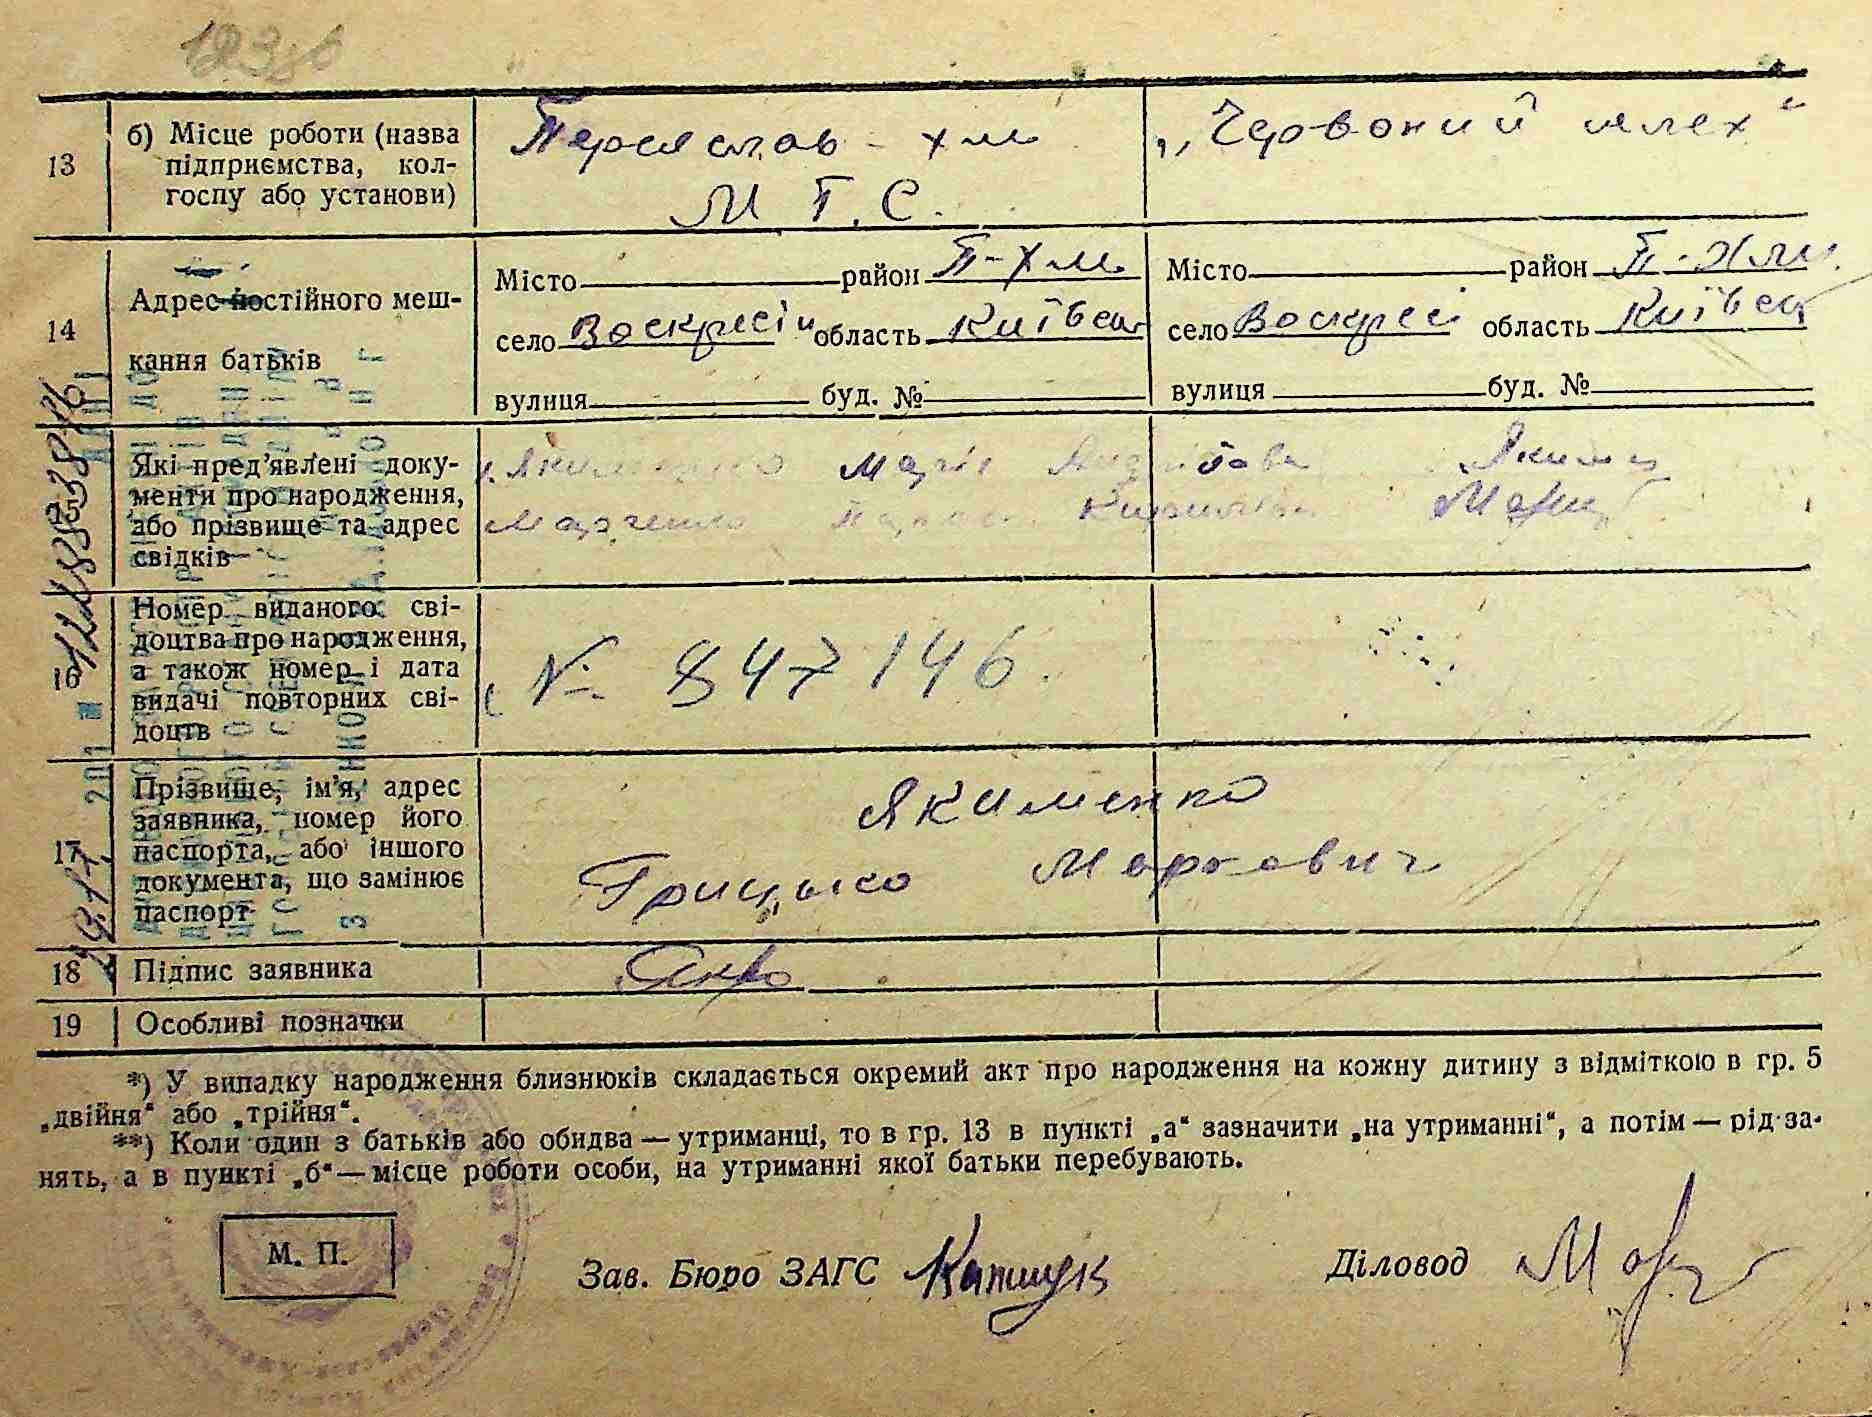 13
б) Місце роботи (назва
підприємства, кол-
госпу або установи)
Переяслав - хм
М Т. С.
„Червоний шлях“
14
Адрес постійного меш-
кання батьків
Місто район П-Хм.
село Воскресін область Київськ
вулиця буд. №
Місто район П-Хм.
село Воскресі область Київськ
вулиця буд. №
15
Які пред’явлені доку-
менти про народження,
або прізвище та адрес
свідків
Якименко Марія
Марченко
16
Номер виданого сві-
доцтва про народження,
а також номер і дата
видачі повторних сві-
доцтв
№ 847146
17
Прізвище, ім’я, адрес
заявника, номер його
паспорта, або іншого
документа, що замінює
паспорт
Якименко
Грицько Маркович
18
Підпис заявника
19
Особливі позначки
*) У випадку народження близнюків складається окремий акт про народження на кожну дитину з відміткою в гр. 5
„двійня“ або „трійня“.
**) Коли один з батьків або обидва — утриманці, то в гр. 13 в пункті „а“ зазначити „на утриманні“, а потім — рід за-
нять, а в пункті „б“ — місце роботи особи, на утриманні якої батьки перебувають.
М. П.
Зав. Бюро ЗАГС
Діловод